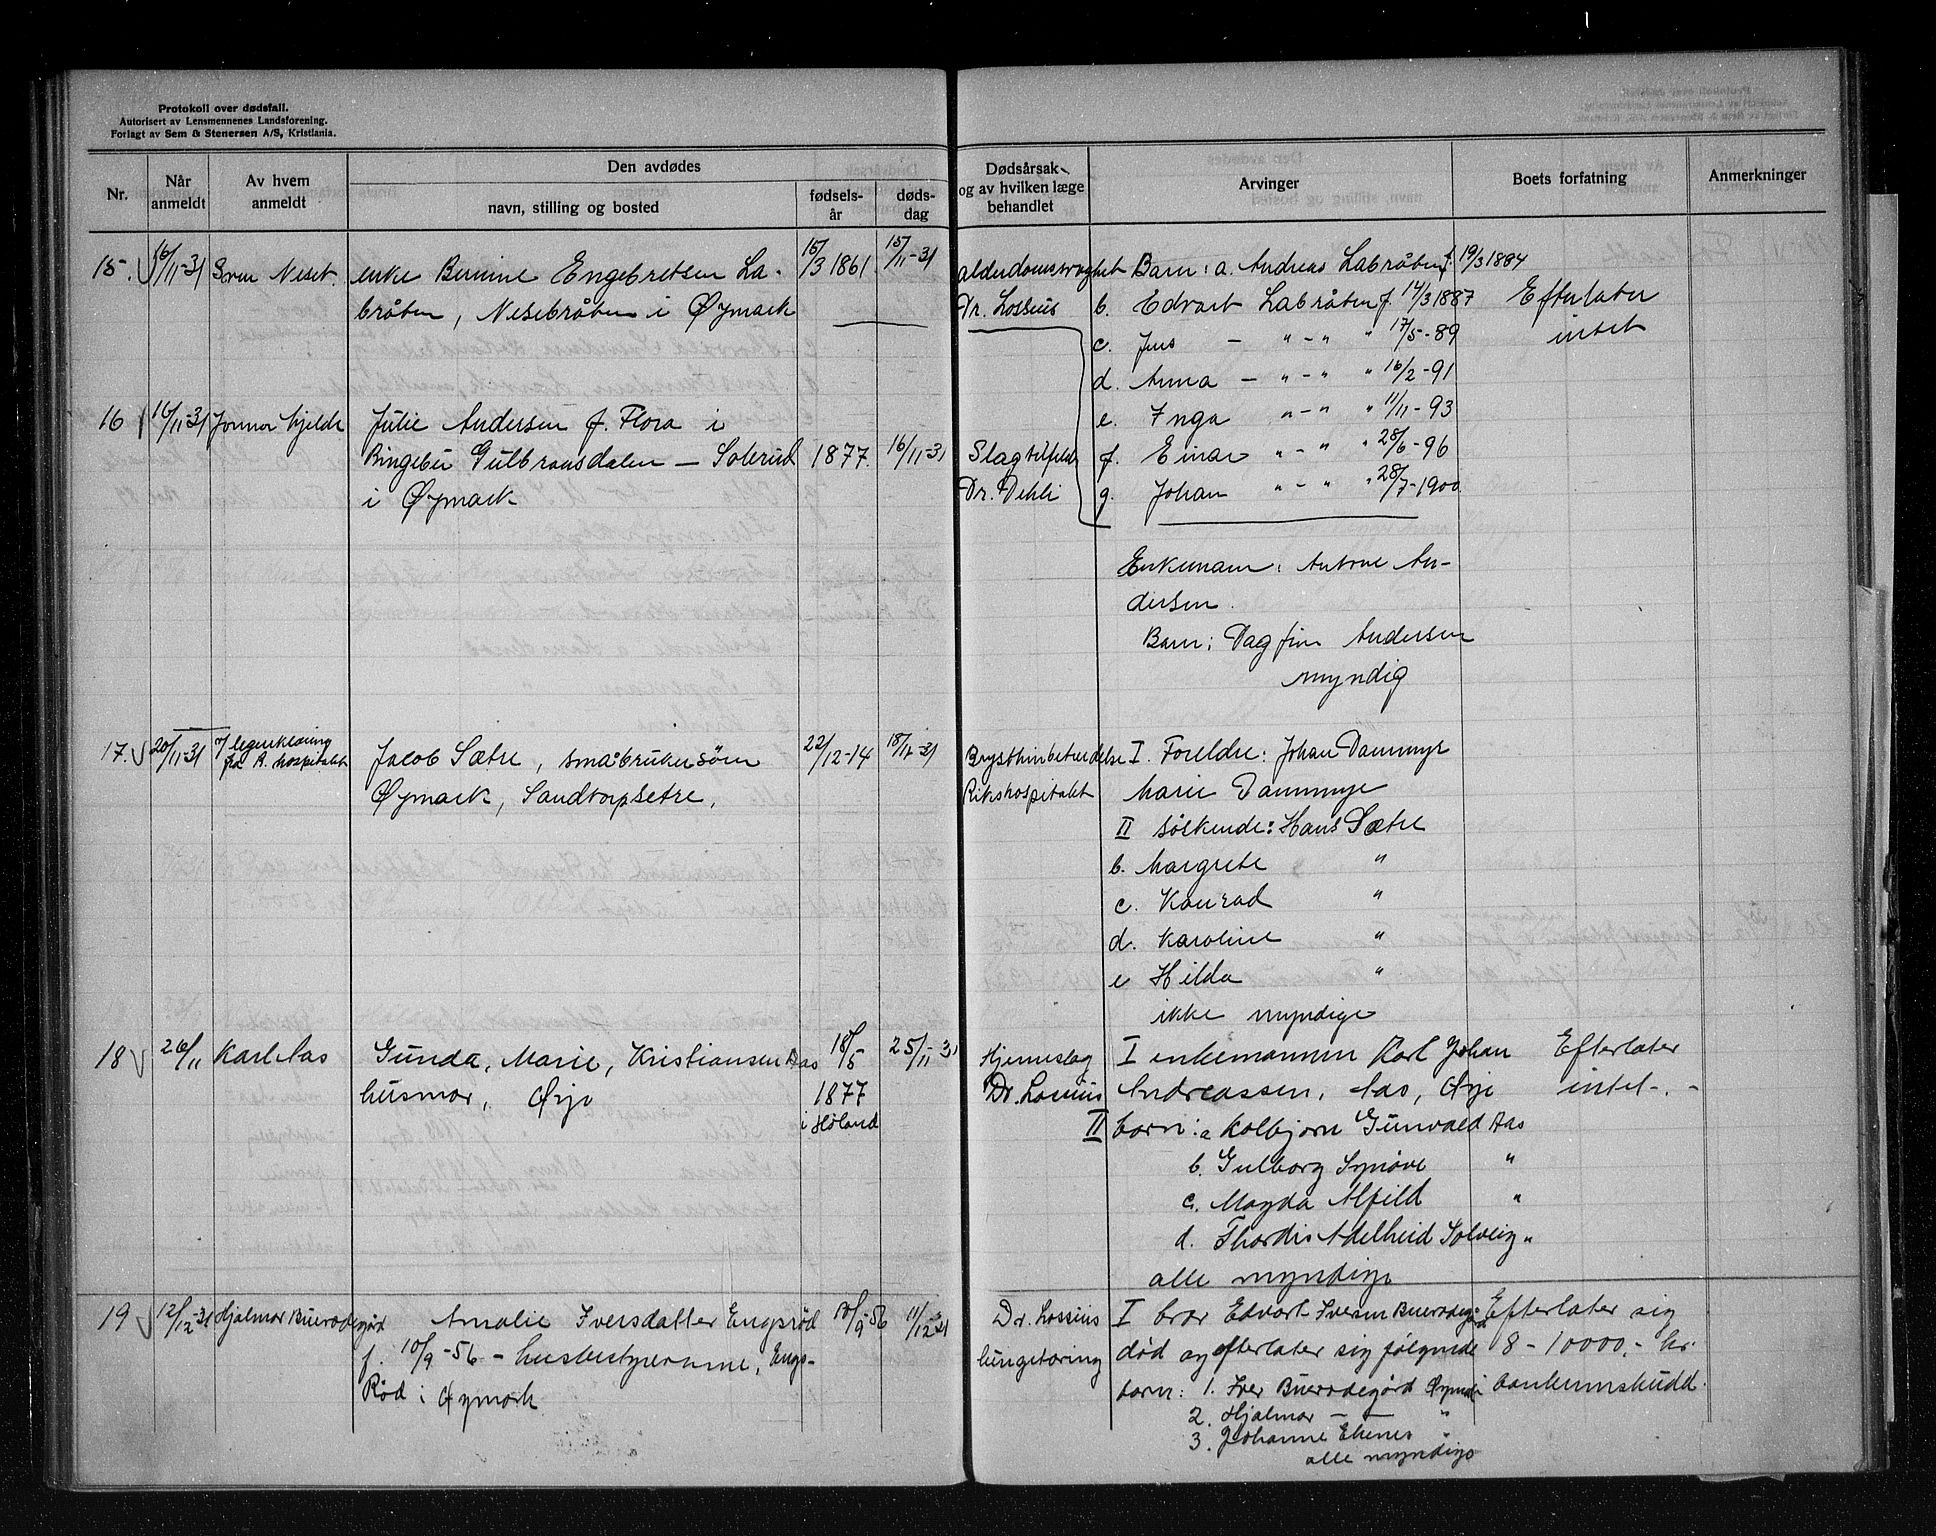 Protokoll over dødsfall.
Autorisert av Lensmennenes Landsforening.
Forlagt av Sem & Stenersen A/S, Kristiania.
Nr.
Når anmeldt
Av hvem anmeldt
Den avdødes
navn, stilling og bosted
fødsels-år
døds-dag
Dødsårsak og av hvilken læge behandlet
Arvinger
Boets forfatning
Anmerkninger
15. 16/11-31 Sven Neset enke Bernine Engebretsen La- 15/3 1861. 15/11-31
bråten, Nesebråten i Øymark
alderdomssvaghet Barn: a. Andreas Labråten f. 19/3 1884
Dr. Lossius b. Edvart Labråten f. 14/3 1887 Efterlater
c. Jens — " — " " 17/5-89 intet
d. Anna — " — " " 16/2-91
e. Inga " — " " 11/11-93
f. Einar " — " " 28/6-96
g. Johan " — " " 28/7-1900
16 16/11-31 Julie Andersen f. Flora i
Gulbransdalen — Solerud 1877. 16/11-31
i Øymark
Slagtilfelde
Dr. Dehli
Enkemann: Antone An-
dersen.
Barn: Dagfinn Andersen
myndig
17. 20/11-31 legeerklæring
fra R. hospitalet
Jacob Sætre, småbrukersønn 22/12-14 18/11-31
Øymark, Sandtorpsetre,
Brysthinbetendelse I. Foreldre: Johan Dammyr
Rikshospitalet Marie Dammyr
II søskende: Hans Sætre
b. Margrete "
c. Konrad "
d. Karoline "
e Hilda "
ikke myndige
18 26/11 Karl Aas Gunda, Marie, Kristiansen Aas 18/5 25/11-31
husmor, Ørje 1877
i Høland
Hjerneslag I enkemannen Karl Johan Efterlater
Dr. Lossius Andreassen, Aas, Ørje intet. -
II barn: a Kolbjørn Gunvald Aas
b. Gulborg Synøve "
c. Magda Alfild "
d. Thordis Adelheid Solveig "
alle myndige
19 12/12-31 Hjalmar Buerødegård Amalie Iversdatter Engsrød 10/9-56 11/12-31
f. 10/9-56 - husbestyrerinne, Engs-
Rød i Øymark
Dr. Lossius I bror Edvart Iversen Buerødegård Efterlater sig
lungetæring død og efterlater sig følgende 8 - 10000,- kr.
barn: 1. Iver Buerødegård Øymark i bankinnskudd.
2. Hjalmar — — "
3. Johanne Ekenes "
alle myndige